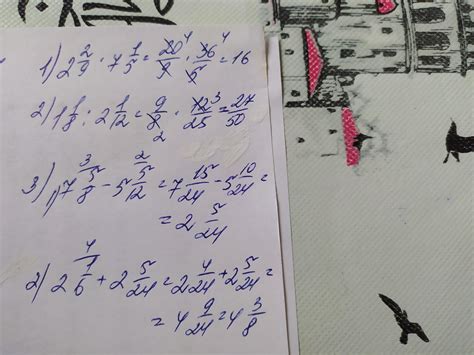 1) 2 2/9 · 7 1/5 = 20⁴/9 · 36⁴/5 = 16
2) 1 1/8 : 2 1/12 = 9/8₂ · 12³/25 = 27/50
3) 7 ³5/8 − 5 ²5/12 = 7 15/24 − 5 10/24 =
= 2 5/24
2) 2 ⁴1/6 + 2 5/24 = 2 4/24 + 2 5/24 =
= 4 9/24 = 4 3/8